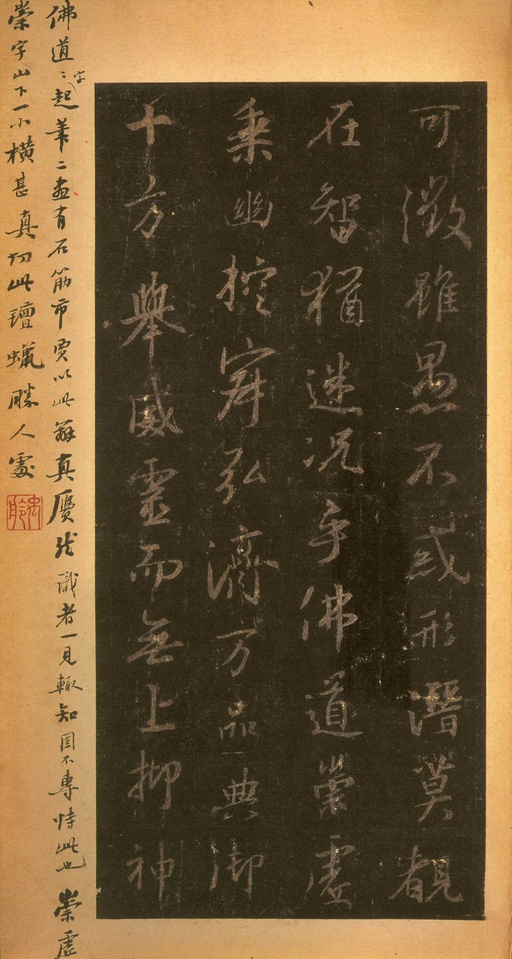 可徵雖愚不惑形潛莫覩
在智猶迷況乎佛道崇虛
乘幽控寂弘濟万品典御
十方舉威靈而無上抑神
佛道〻字起筆二畫有石筋市賈以此辨真贗然識者一見輒知固不專恃此也 崇虛
崇字山下一小橫甚真切此氈蠟勝人處